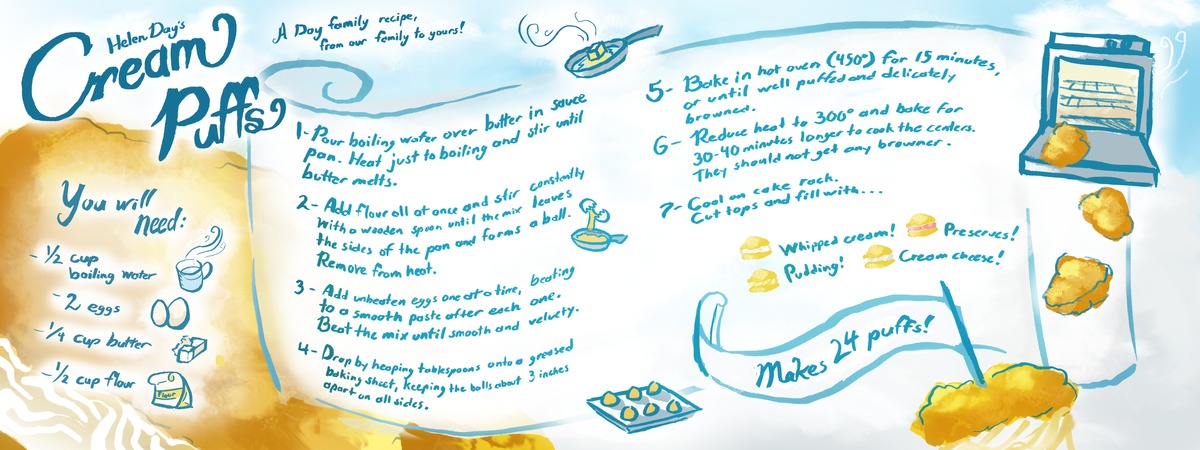 Helen Day's
Cream
Puffs
A Day family recipe,
from our family to yours!
You will
need:
- 1/2 cup
boiling water
- 2 eggs
- 1/4 cup butter
- 1/2 cup flour
Flour
1- Pour boiling water over butter in sauce
pan. Heat just to boiling and stir until
butter melts.
2- Add flour all at once and stir constantly
with a wooden spoon until the mix leaves
the sides of the pan and forms a ball.
Remove from heat.
3- Add unbeaten eggs one at a time, beating
to a smooth paste after each one.
Beat the mix until smooth and velvety.
4- Drop by heaping tablespoons onto a greased
baking sheet, keeping the balls about 3 inches
apart on all sides.
5- Bake in hot oven (450°) for 15 minutes,
or until well puffed and delicately
browned.
6- Reduce heat to 300° and bake for
30-40 minutes longer to cook the centers.
They should not get any browner.
7- Cool on cake rack.
Cut tops and fill with...
Whipped cream! Preserves!
Pudding! Cream cheese!
Makes 24 puffs!